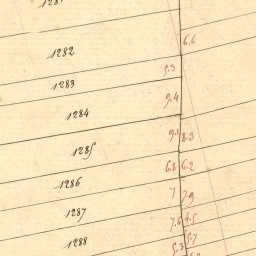 1282
6.6
5.3
1283
9.4
1284
8.3
1285
6.8 6.2
1286
7 7.9
1287
7.6 4.5
1288
5.3 5.7